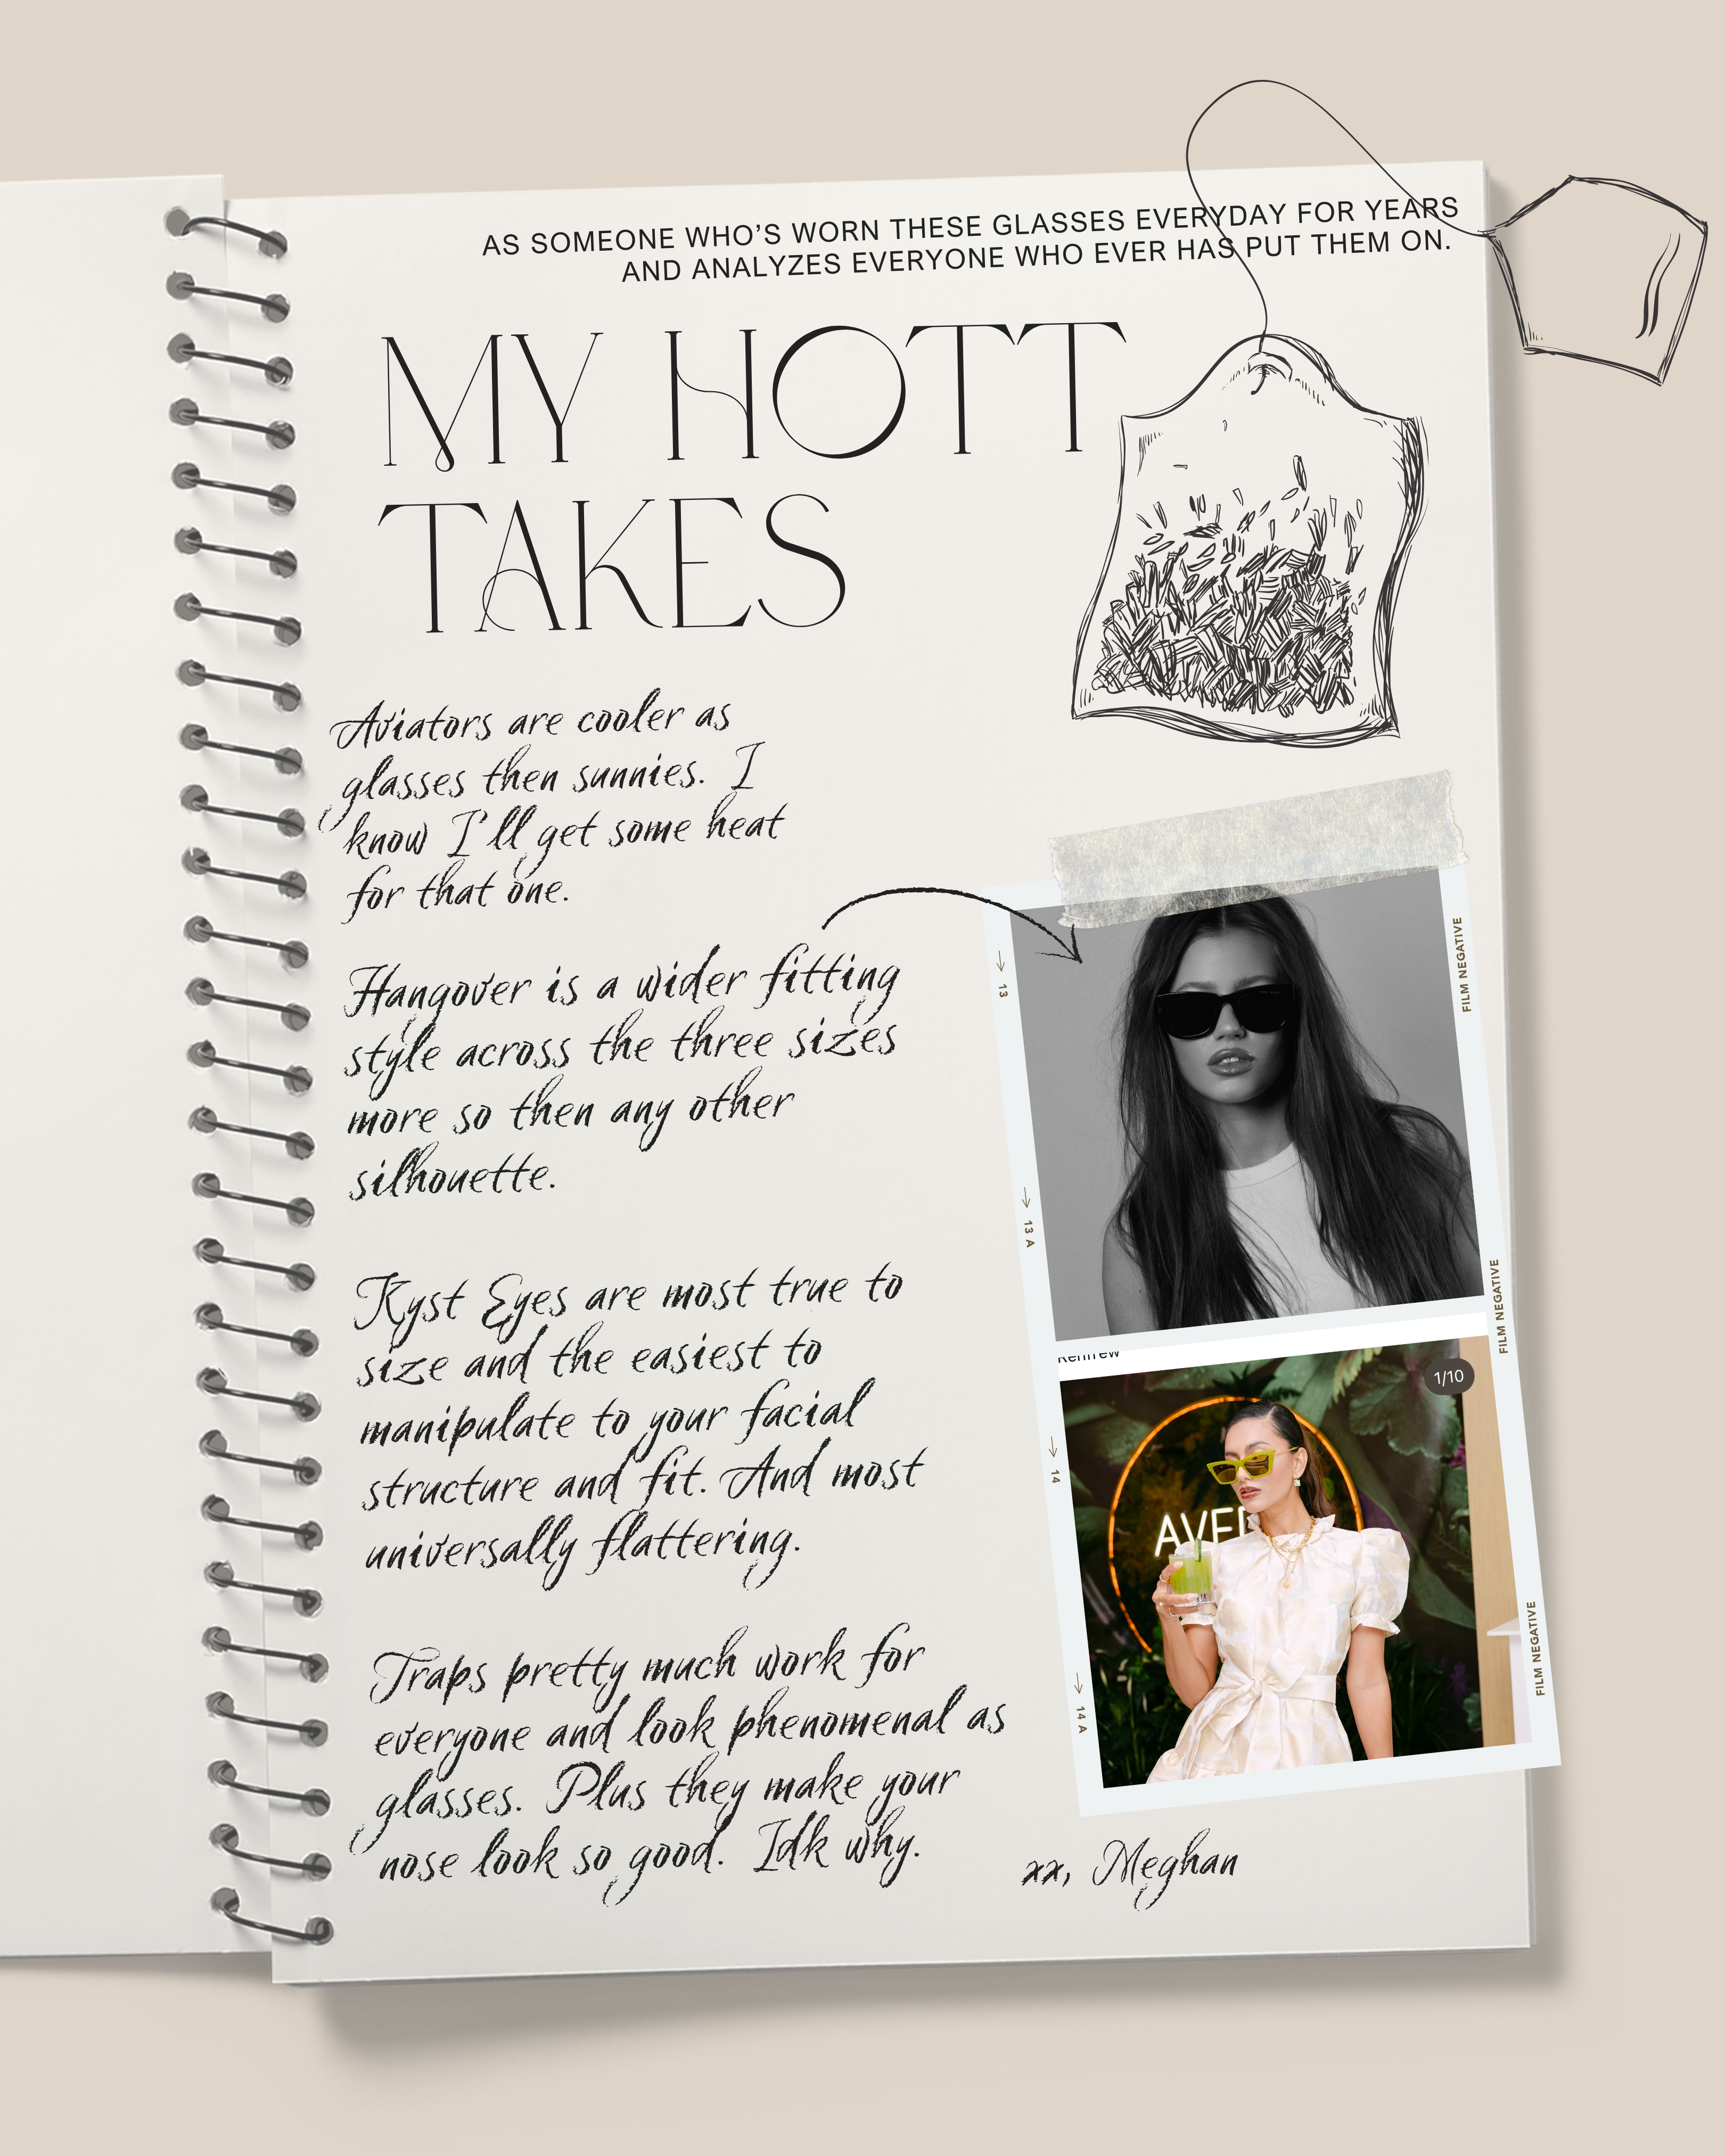 AS SOMEONE WHO'S WORN THESE GLASSES EVERYDAY FOR YEARS
AND ANALYZES EVERYONE WHO EVER HAS PUT THEM ON.
MY HOTT
TAKES
Aviators are cooler as
glasses then sunnies. I
know I'll get some heat
for that one.
Hangover is a wider fitting
style across the three sizes
more so then any other
silhouette.
Kyst Eyes are most true to
size and the easiest to
manipulate to your facial
structure and fit. And most
universally flattering.
Traps pretty much work for
everyone and look phenomenal as
glasses. Plus they make your
nose look so good. Idk why.
xx, Meghan
→ 13
FILM NEGATIVE
→ 13 A
FILM NEGATIVE
Renfrew
1/10
→ 14
AVE
FILM NEGATIVE
→ 14 A